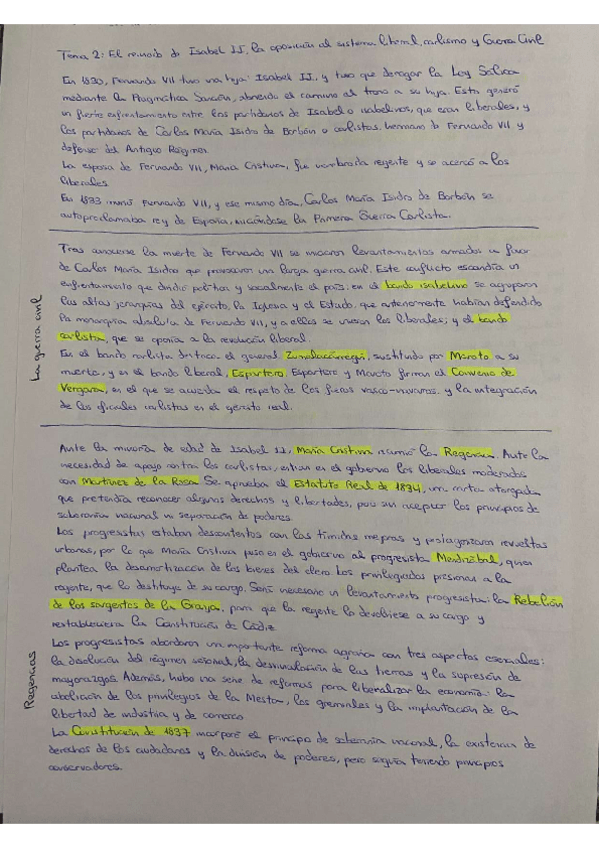 Tema 2: El reinado de Isabel II, la oposición al sistema liberal, carlismo y Guerra Civil
En 1830, Fernando VII tuvo una hija: Isabel II, y tuvo que derogar la Ley Sálica
mediante la Pragmática Sanción, abriendo el camino al trono a su hija. Esto generó
un fuerte enfrentamiento entre los partidarios de Isabel o isabelinos, que eran liberales, y
los partidarios de Carlos María Isidro de Borbón o carlistas, hermano de Fernando VII y
defensor del Antiguo Régimen.
La esposa de Fernando VII, María Cristina, fue nombrada regente y se acercó a los
liberales
En 1833 murió Fernando VII, y ese mismo día, Carlos María Isidro de Borbón se
autoproclamaba rey de España, iniciándose la Primera Guerra Carlista.
La guerra civil
Tras conocerse la muerte de Fernando VII se iniciaron levantamientos armados en favor
de Carlos María Isidro que provocaron una larga guerra civil. Este conflicto escondía un
enfrentamiento que dividió política y socialmente el país: en el bando isabelino se agruparon
las altas jerarquías del ejército, la Iglesia y el Estado, que anteriormente habían defendido
la monarquía absoluta de Fernando VII, y a ellos se unieron los liberales; y el bando
carlista, que se oponía a la revolución liberal.
En el bando carlista destaca el general Zumalacárregui, sustituido por Maroto a su
muerte, y en el bando liberal, Espartero. Espartero y Maroto firman el Convenio de
Vergara, en el que se acuerda el respeto de los fueros vasco-navarros y la integración
de los oficiales carlistas en el ejército real.
Regencias
Ante la minoría de edad de Isabel II, María Cristina asumió la Regencia. Ante la
necesidad de apoyo contra los carlistas, entran en el gobierno los liberales moderados
con Martínez de la Rosa. Se aprueba el Estatuto Real de 1834, una carta otorgada
que pretendía reconocer algunos derechos y libertades, pero sin aceptar los principios de
soberanía nacional ni separación de poderes.
Los progresistas estaban descontentos con las tímidas mejoras y protagonizaron revueltas
urbanas, por lo que María Cristina puso en el gobierno al progresista Mendizábal, quien
plantea la desamortización de los bienes del clero. Los privilegiados presionan a la
regente, que lo destituye de su cargo. Será necesario un levantamiento progresista: la Rebelión
de los sargentos de la Granja, para que la regente lo devolviese a su cargo y
restableciera la Constitución de Cádiz.
Los progresistas abordaron una importante reforma agraria con tres aspectos esenciales:
la disolución del régimen señorial, la desvinculación de las tierras y la supresión de
mayorazgos. Además, hubo una serie de reformas para liberalizar la economía: la
abolición de los privilegios de la Mesta, los gremiales y la implantación de la
libertad de industria y de comercio.
La Constitución de 1837 incorporó el principio de soberanía nacional, la existencia de
derechos de los ciudadanos y la división de poderes, pero seguía teniendo principios
conservadores.